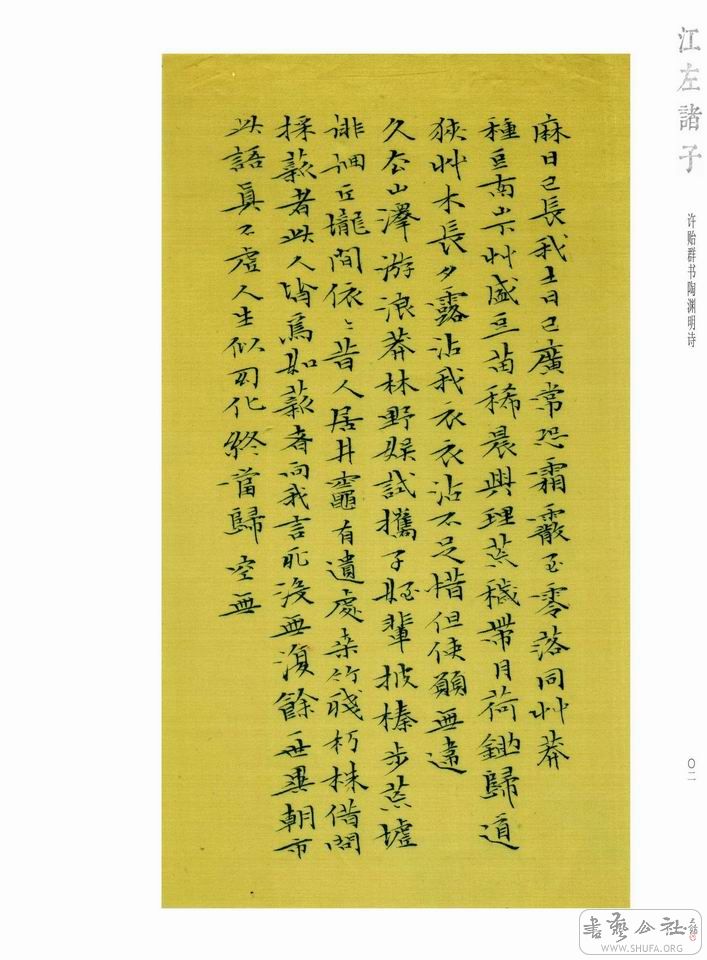 江左諸子
许贻群书陶渊明诗
〇二
麻日已長我土日已廣常恐霜霰至零落同艸莽
種豆南山下艸盛豆苗稀晨興理荒穢帶月荷鋤歸道
狹艸木長夕露沾我衣衣沾不足惜但使願無違
久去山澤游浪莽林野娛試攜子姪輩披榛步荒墟
徘徊丘壠間依〻昔人居井竈有遺處桑竹殘朽株借問
採薪者此人皆焉如薪者向我言死沒無復餘一世異朝市
此語真不虛人生似幻化終當歸空無
書藝公社
WWW.SHUFA.ORG